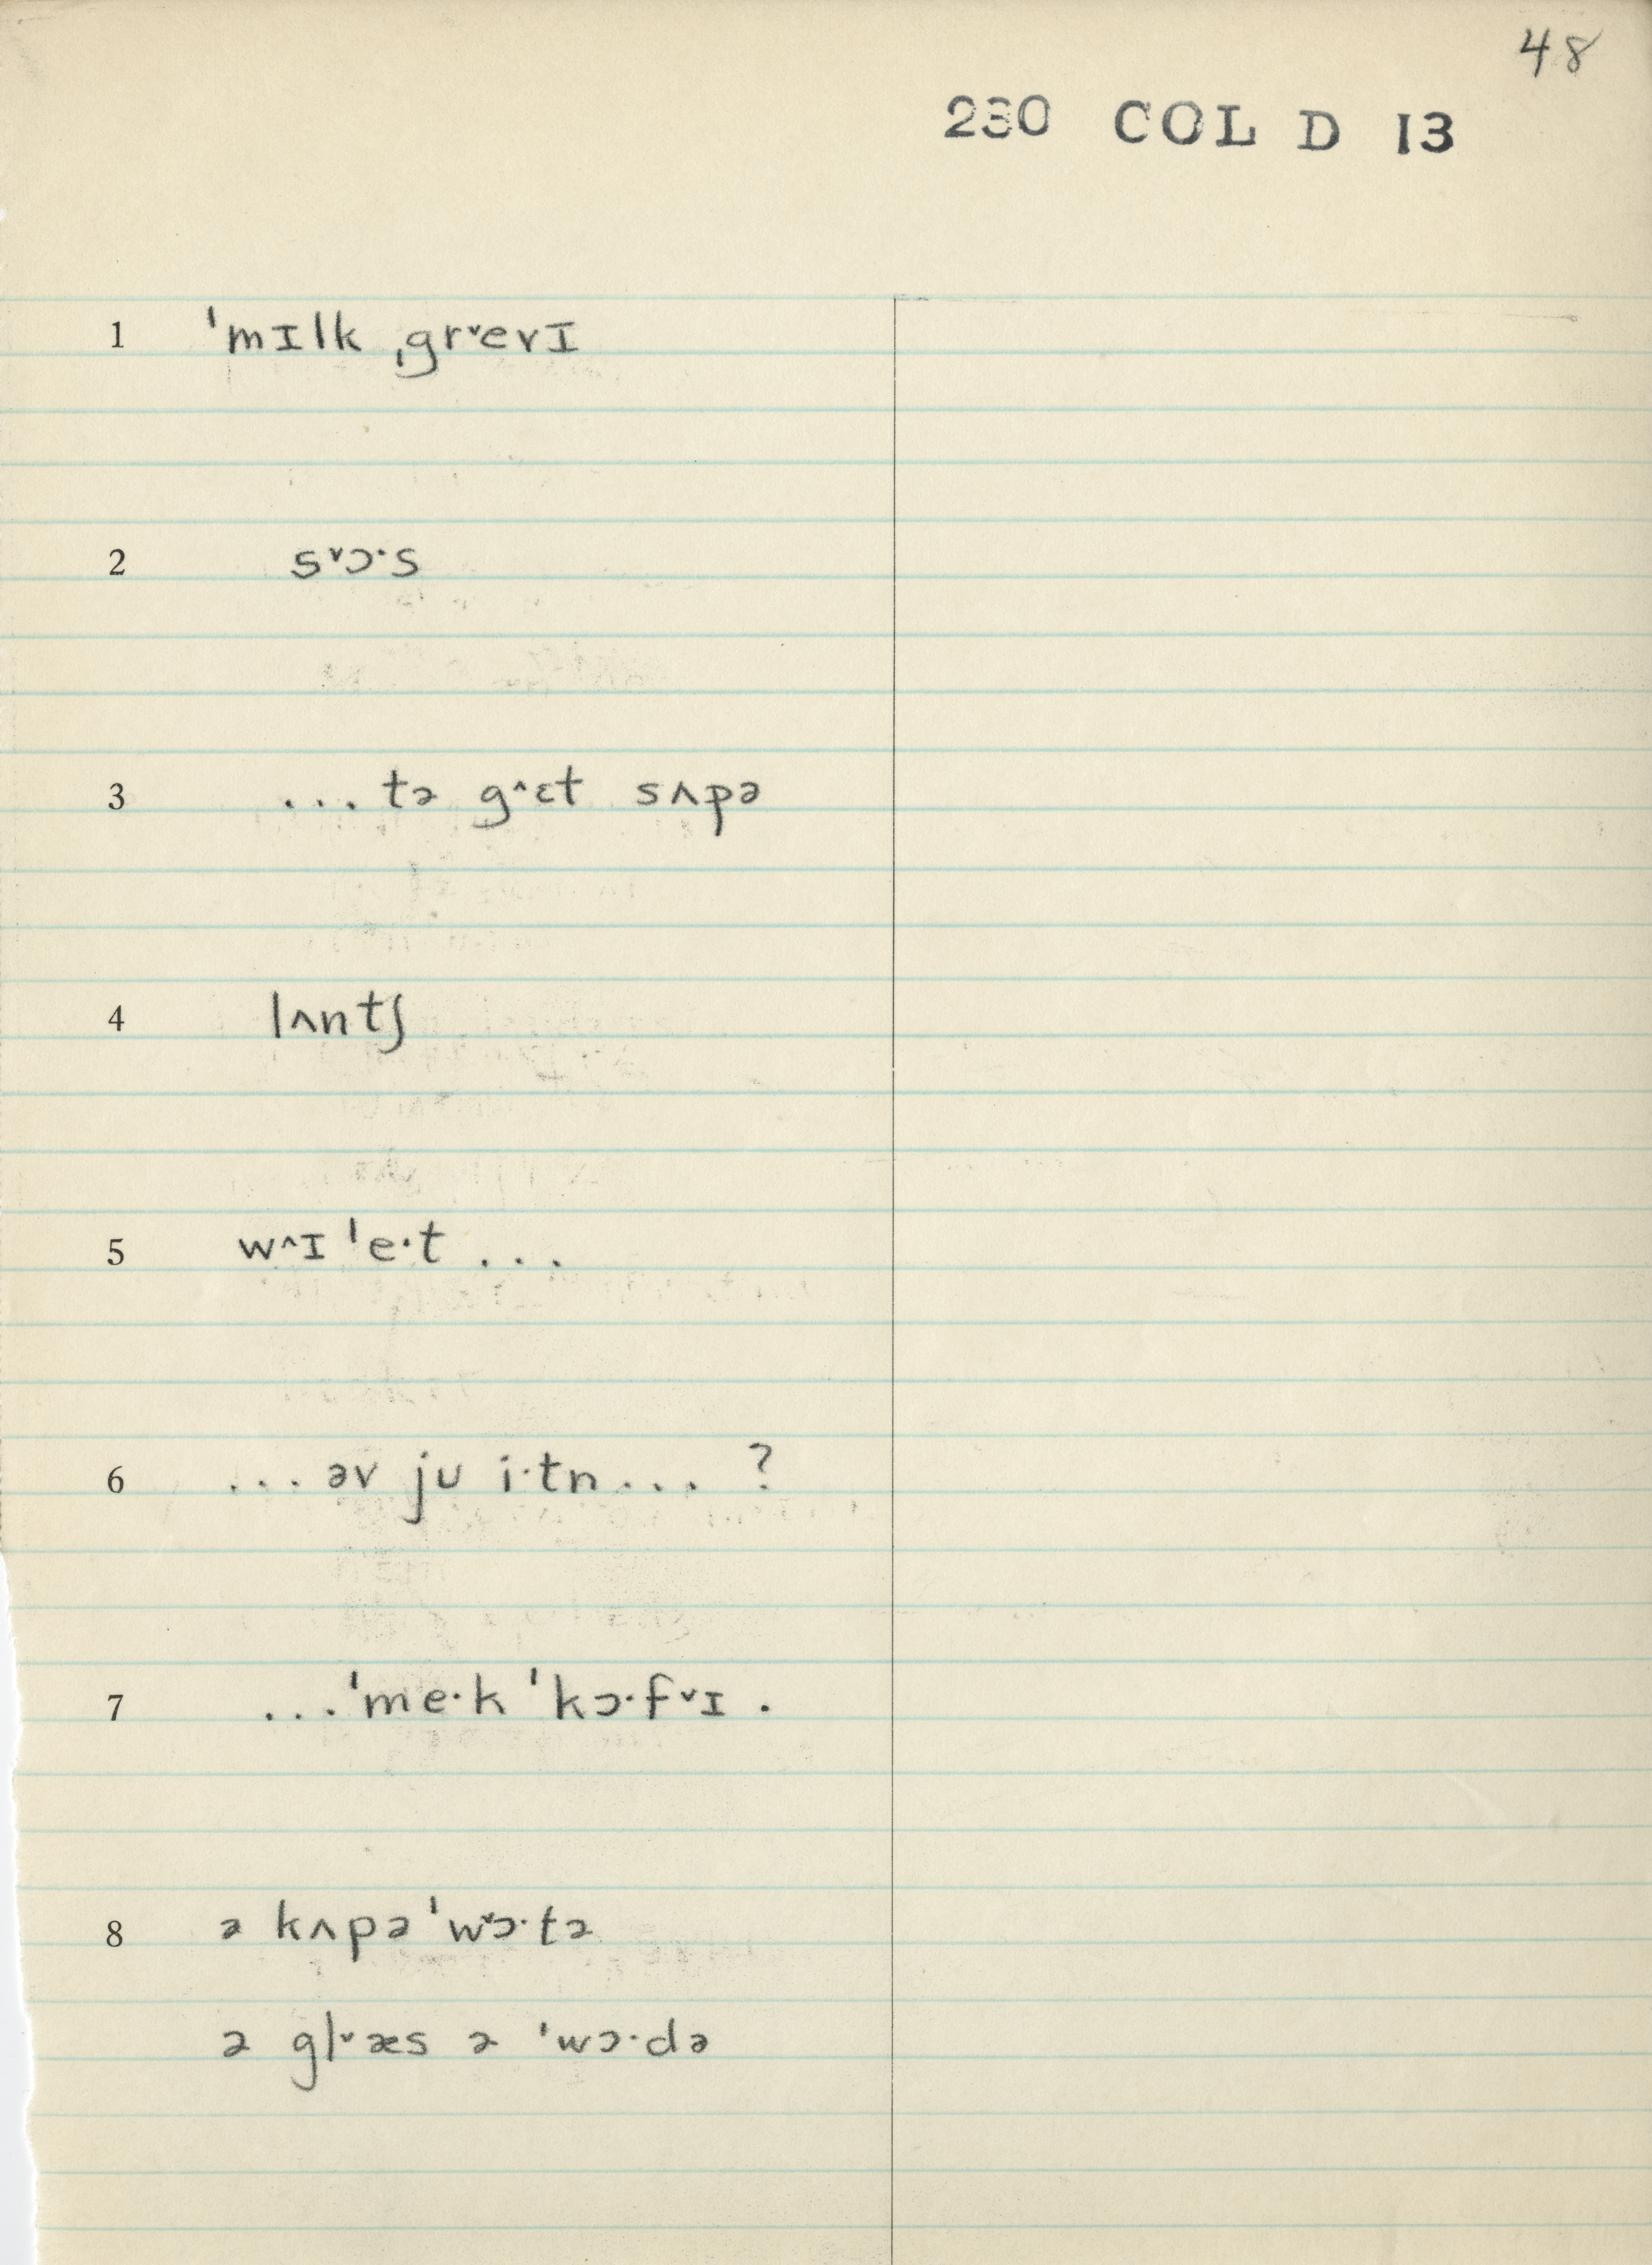 48
230 COL D 13
1 ˈmɪlk ˌgrˇevɪ
2 sˇɔ·s
3 ...tə gˆɛt sʌpə
4 lʌntʃ
5 wˆɪ ˈe·t ...
6 ...əv ju i·tn... ?
7 ...ˈme·k ˈkɔ·fˇɪ .
8 ə kʌpə ˈwˇɔ·tə
ə glˇæs ə ˈwɔ·də